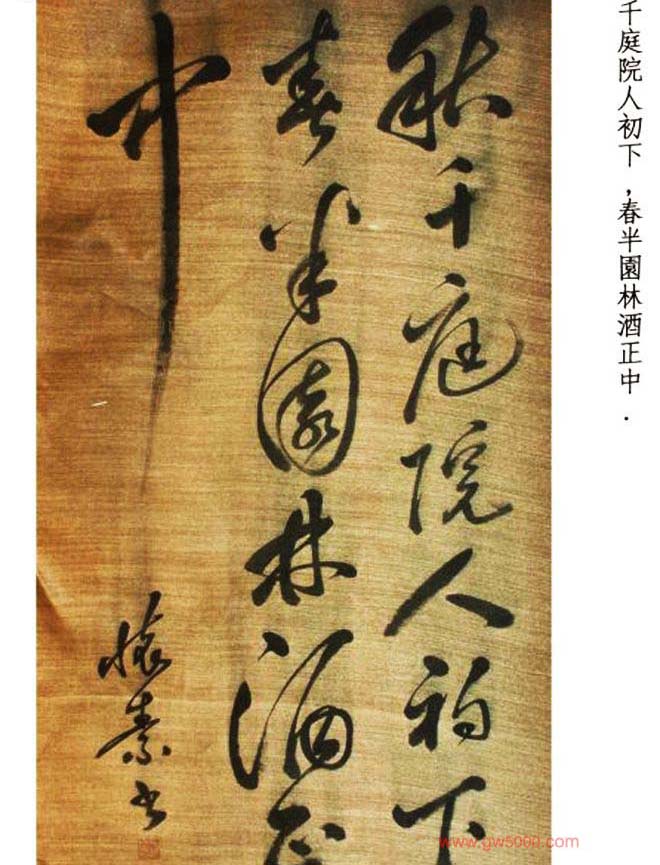 千庭院人初下，春半園林酒正中．
秋千庭院人初下
春半園林酒正
中
懷素書
www.gw5000.com